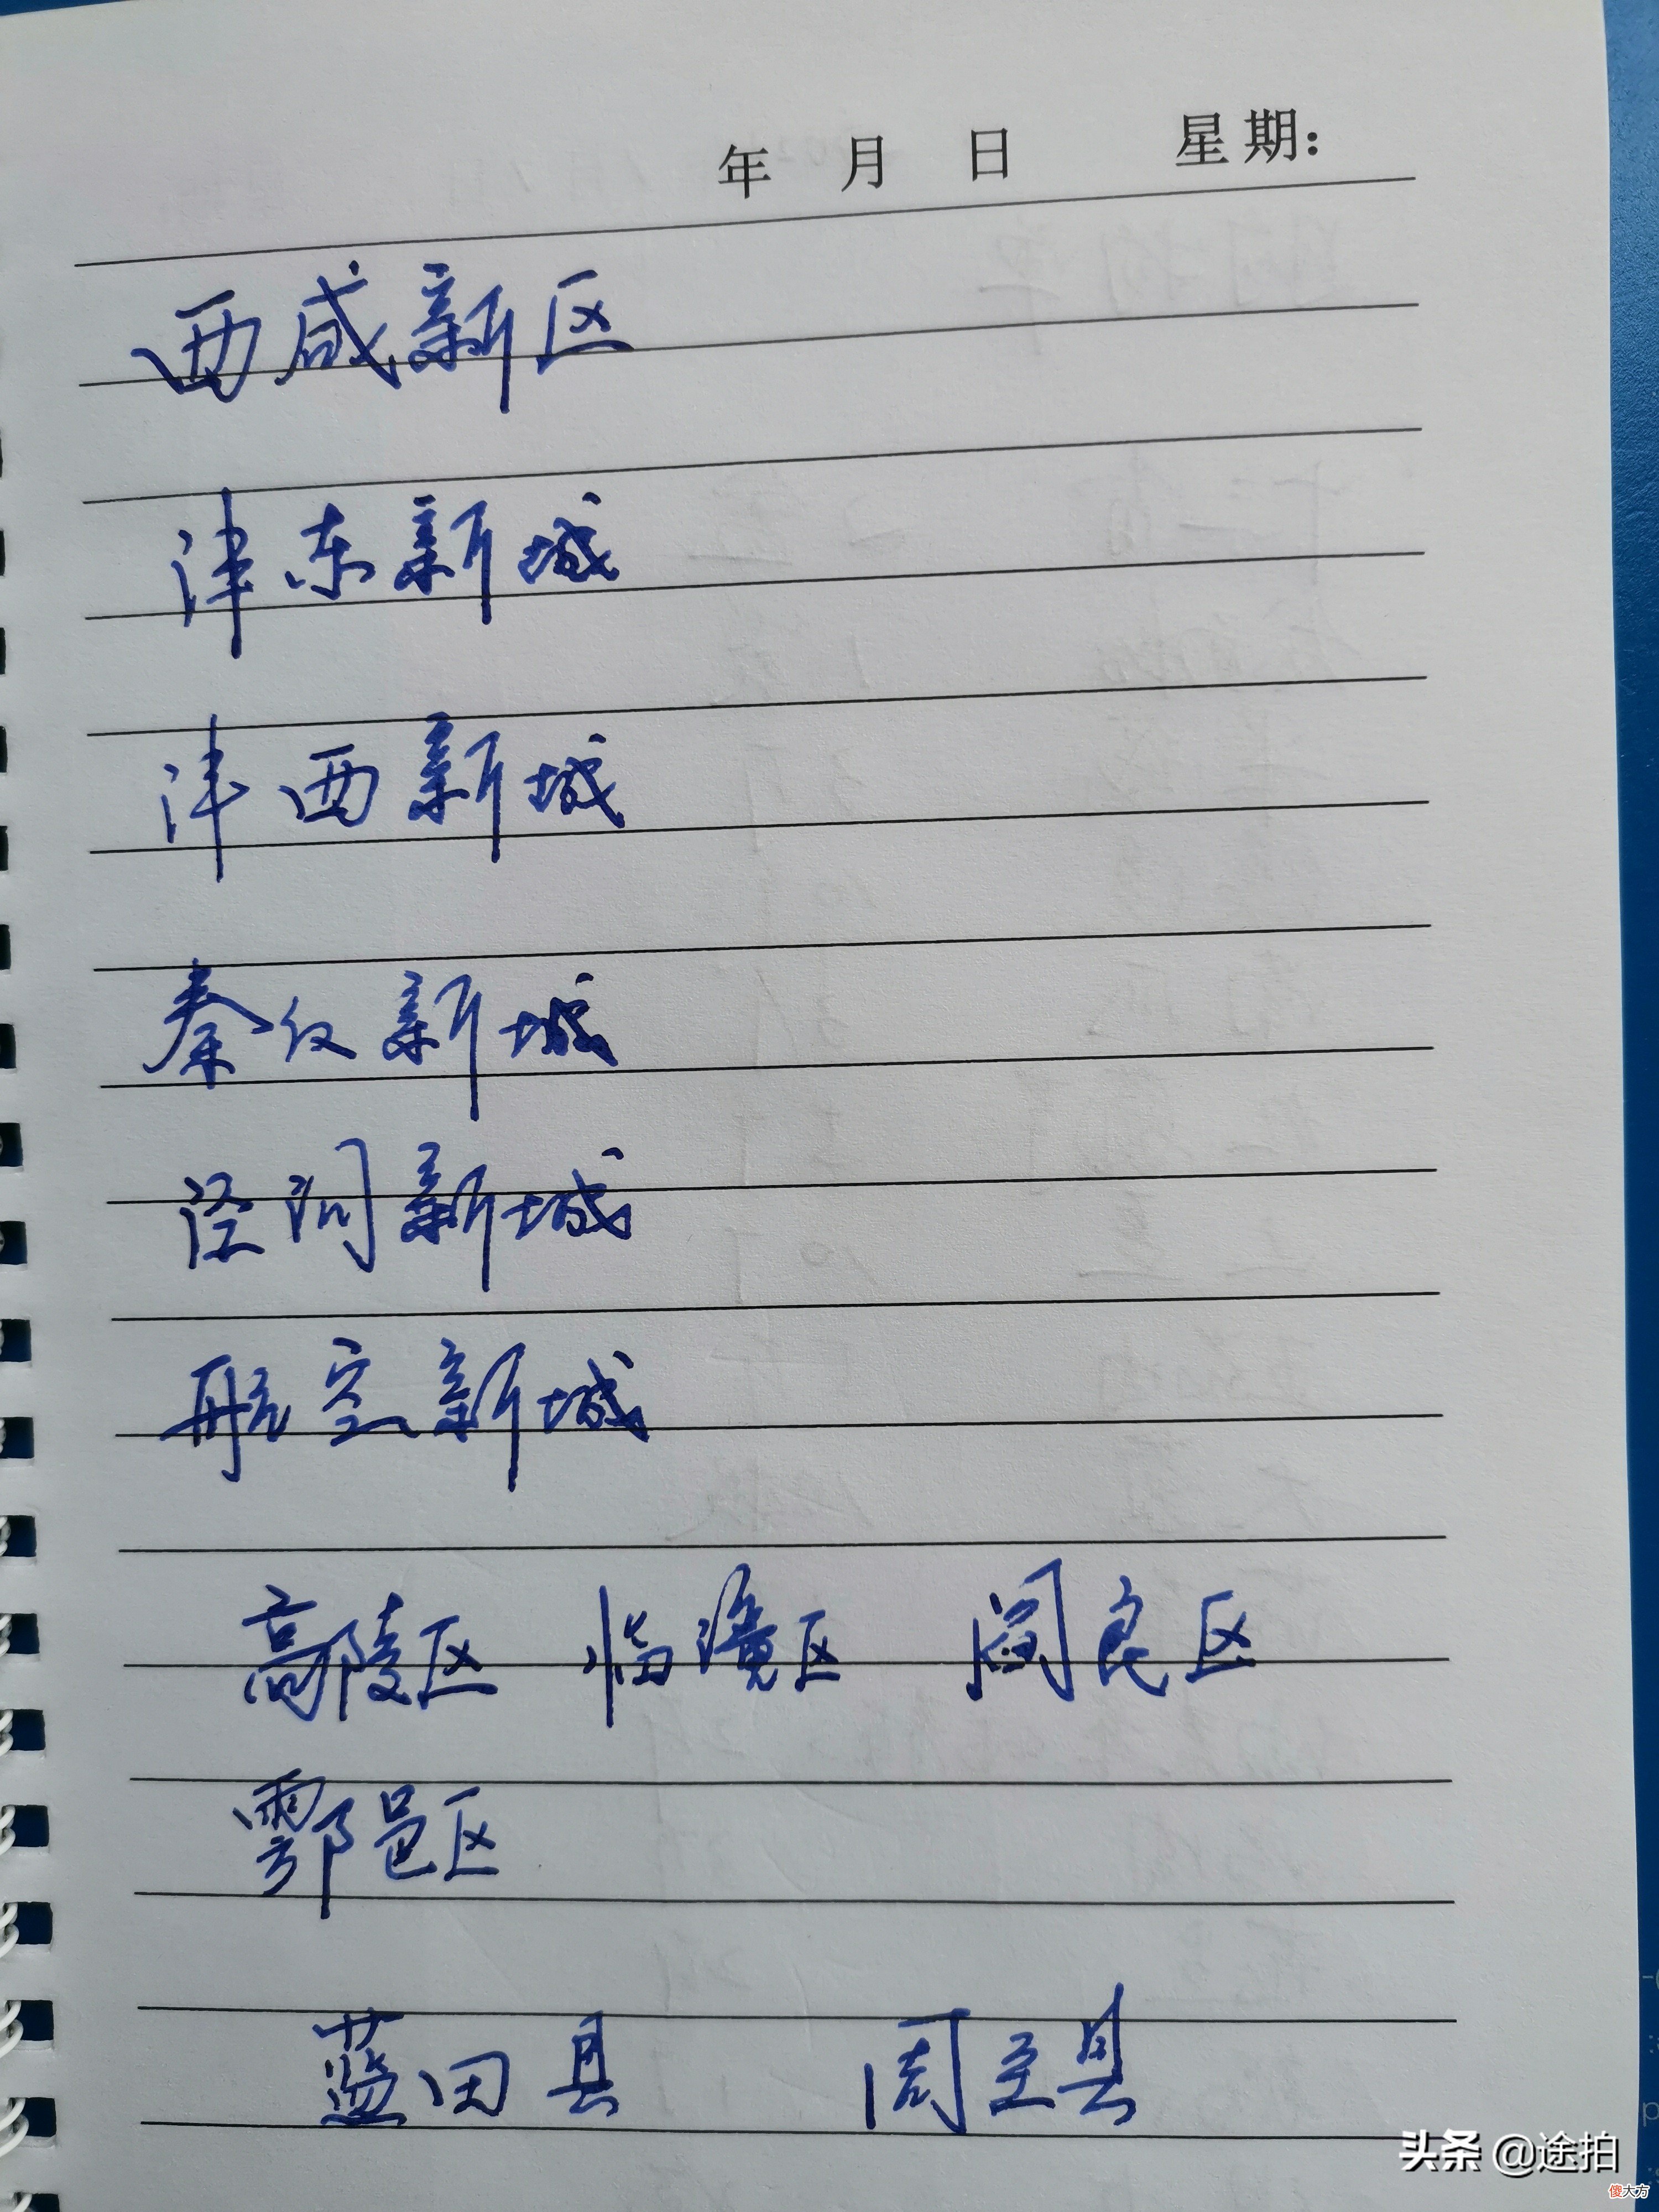 年 月 日 星期:
西咸新区
沣东新城
沣西新城
秦汉新城
泾河新城
航空新城
高陵区 临潼区 阎良区
鄠邑区
蓝田县 周至县
头条 @途拍
傻大方